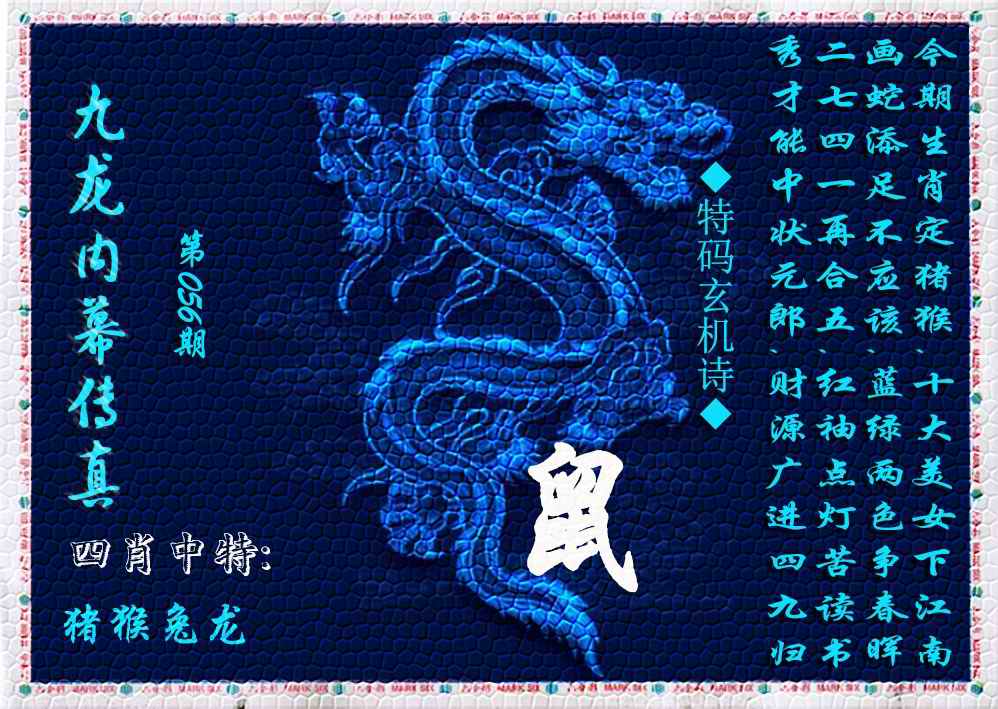 今期生肖定猪猴、十大美女下江南
画蛇添足不应该、蓝绿两色争春晖
二七四一再合五、红袖点灯苦读书
秀才能中状元郎、财源广进四九归
◆特码玄机诗◆
第056期
九龙内幕传真
鼠
四肖中特:
猪猴兔龙